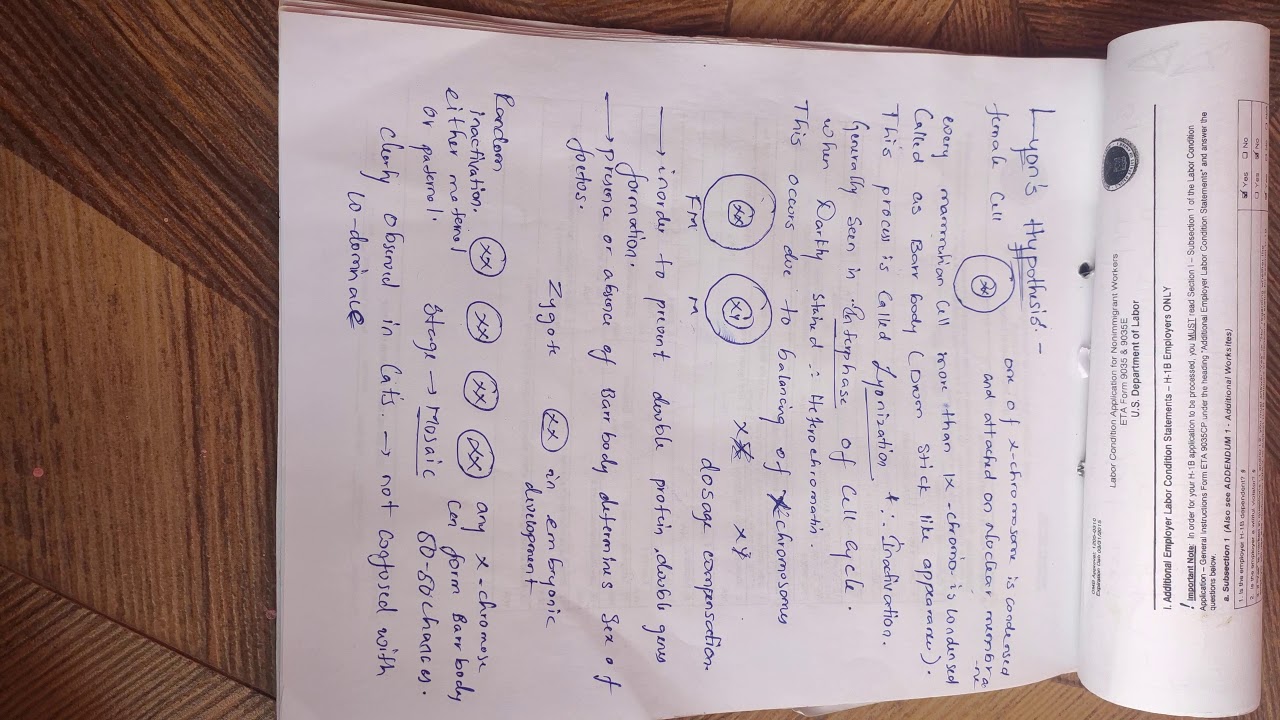 1. Is the employer H-1B dependent? §
☑ Yes ☐ No
a. Subsection 1 (Also see ADDENDUM 1 - Additional Worksites)
! Important Note: In order for your H-1B application to be processed, you MUST read Section I – Subsection 1 of the Labor Condition
Application – General Instructions Form ETA 9035CP under the heading "Additional Employer Labor Condition Statements" and answer the
questions below.
I. Additional Employer Labor Condition Statements – H-1B Employers ONLY
U.S. Department of Labor
ETA Form 9035 & 9035E
Labor Condition Application for Nonimmigrant Workers
Lyon's Hypothesis:-
female Cell
one of x-chromosome is condensed
and attached on Nuclear membra
-ne
every mammalian cell more than 1x-chromo- is condensed
Called as Barr body (Drum stick like appearance).
This process is called Lyonization ∴ Inactivation.
Generally seen in Interphase of cell cycle.
when Darkly stained ∴ Heterochromatin.
This occurs due to balancing of chromosomes
xx
xy
FM
M
dosage compensation
→ inorder to prevent double protein, double genes
formation.
→ presence or absence of Barr body determines Sex of
foetus.
Zygote xx in embryonic
development
Random
inactivation.
either maternal
or paternal.
xx xx xx xx
any x-chromose
can form Barr body
Stage → Mosaic 50-50 chances.
clearly observed in Cats. → not confused with
Co-dominace